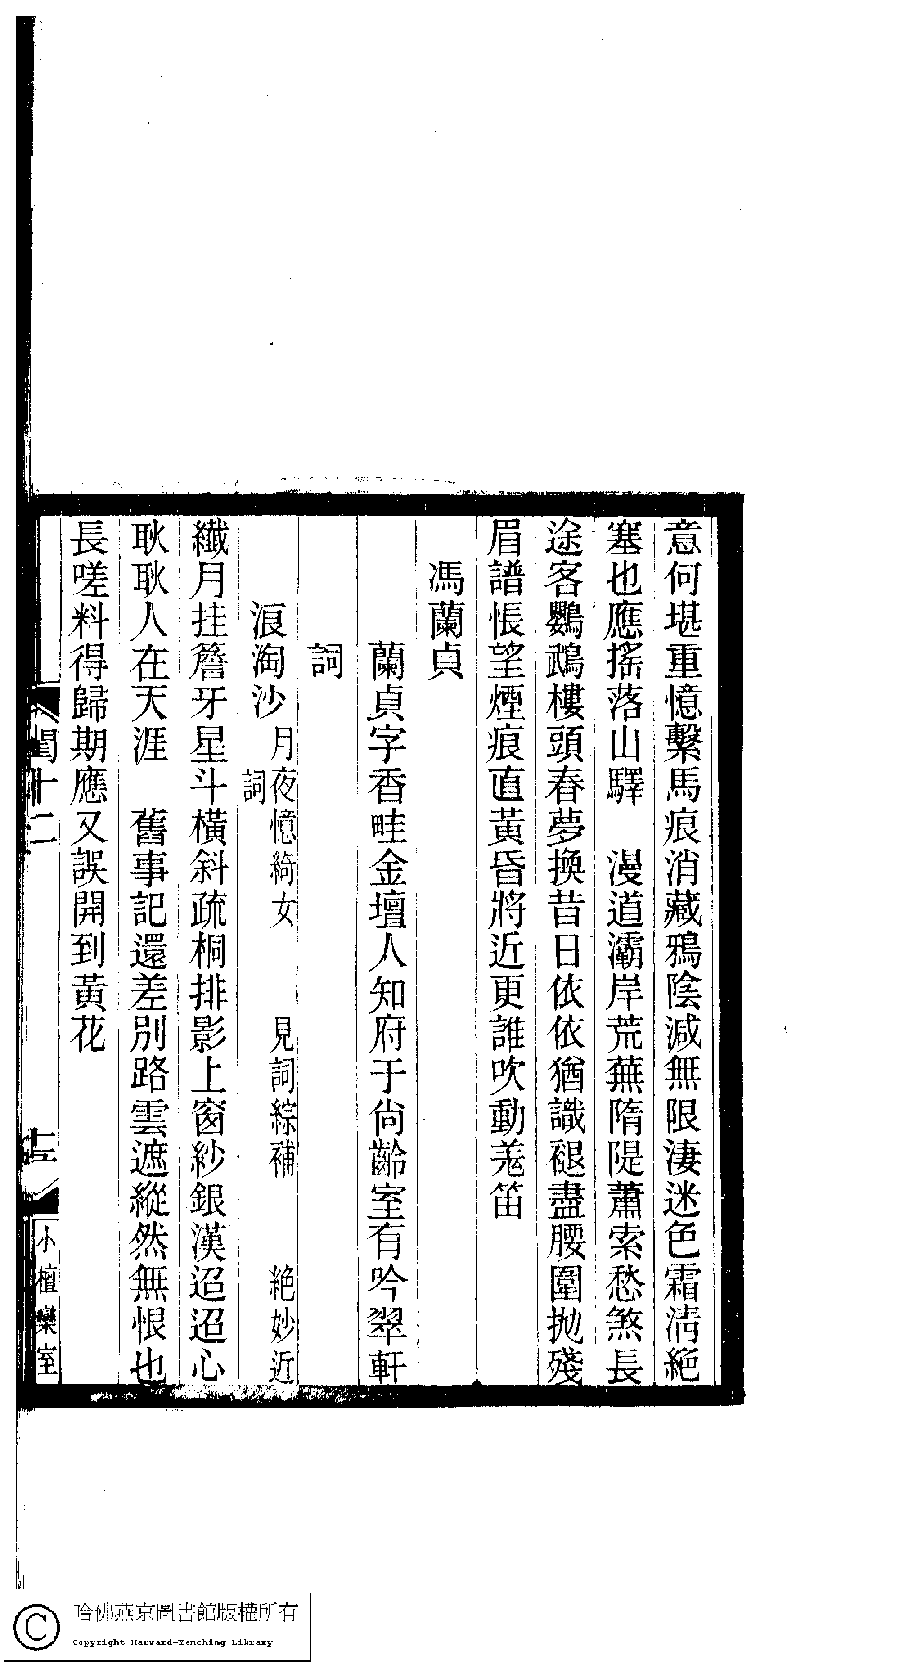 意何堪重憶繫馬痕消藏鴉陰減無限淒迷色霜淸絕
塞也應搖落山驛　漫道灞岸荒蕪隋隄蕭索愁煞長
途客鸚鵡樓頭春夢換昔日依依猶識褪盡腰圍拋殘
眉譜悵望煙痕直黃昏將近更誰吹動羗笛
馮蘭貞
蘭貞字香畦金壇人知府于尙齡室有吟翠軒
詞
浪淘沙　月夜憶綺女　見詞綜補　絕妙近
詞
纖月挂簷牙星斗橫斜疏桐排影上窗紗銀漢迢迢心
耿耿人在天涯　舊事記還差別路雲遮縱然無恨也
長嗟料得歸期應又誤開到黃花
閨十二
十三
小檀欒室
哈佛燕京圖書館版權所有
Copyright Harvard-Yenching Library